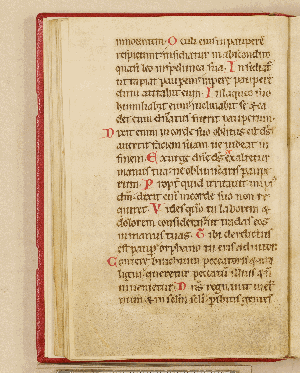 innocentem. Oculi eius in pauperē
respiciunt insidiatur in abscondito
quasi leo in spelunca sua. Insidiat̄
ut rapiat pauperē rapere pauperē
dum attrahit eum. In laqueo suo
humiliabit eum inclinabit se & ca
det cum dn̄atus fuerit pauperum.
Dixit enim in corde suo oblitus est dš
avertit faciem suam ne videat in
finem. Exurge dn̄e dš exaltetur
manus tua ne obliviscaris paupe
rum. Propt̄ quid irritavit impi
dm̄. dixit enī in corde suo non re
quiret. Vides qm̄ tu laborem &
dolorem consideras ut tradas eos
in manus tuas. Tibi derelictus
est paup̄ orphano tu eris adiutor.
Contere brachium peccatoris & ma
ligni queretur peccatū illius & n̄
invenietur. Dn̄s regnavit in et̄
num & in sclm̄ scli peribitis gentes